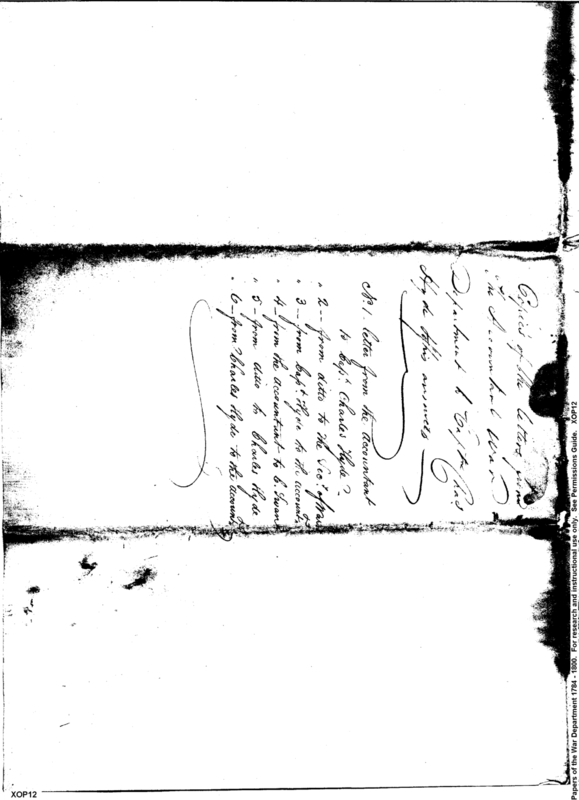 Copies of the letters from
the Accountant War
Department to Captn Chas
Hyde & his answers
No 1. letter from the accountant
to Capt. Charles Hyde
" 2 - - from ditto to the Secy. of War
" 3 - from Capt. Hyde to the account
" 4 - from the accountant to C. Swan
" 5 - from ditto to Charles Hyde
" 6 - from Charles Hyde to the account
XOP12
Papers of the War Department 1784 - 1800. For research and instructional use only. See Permissions Guide. XOP12